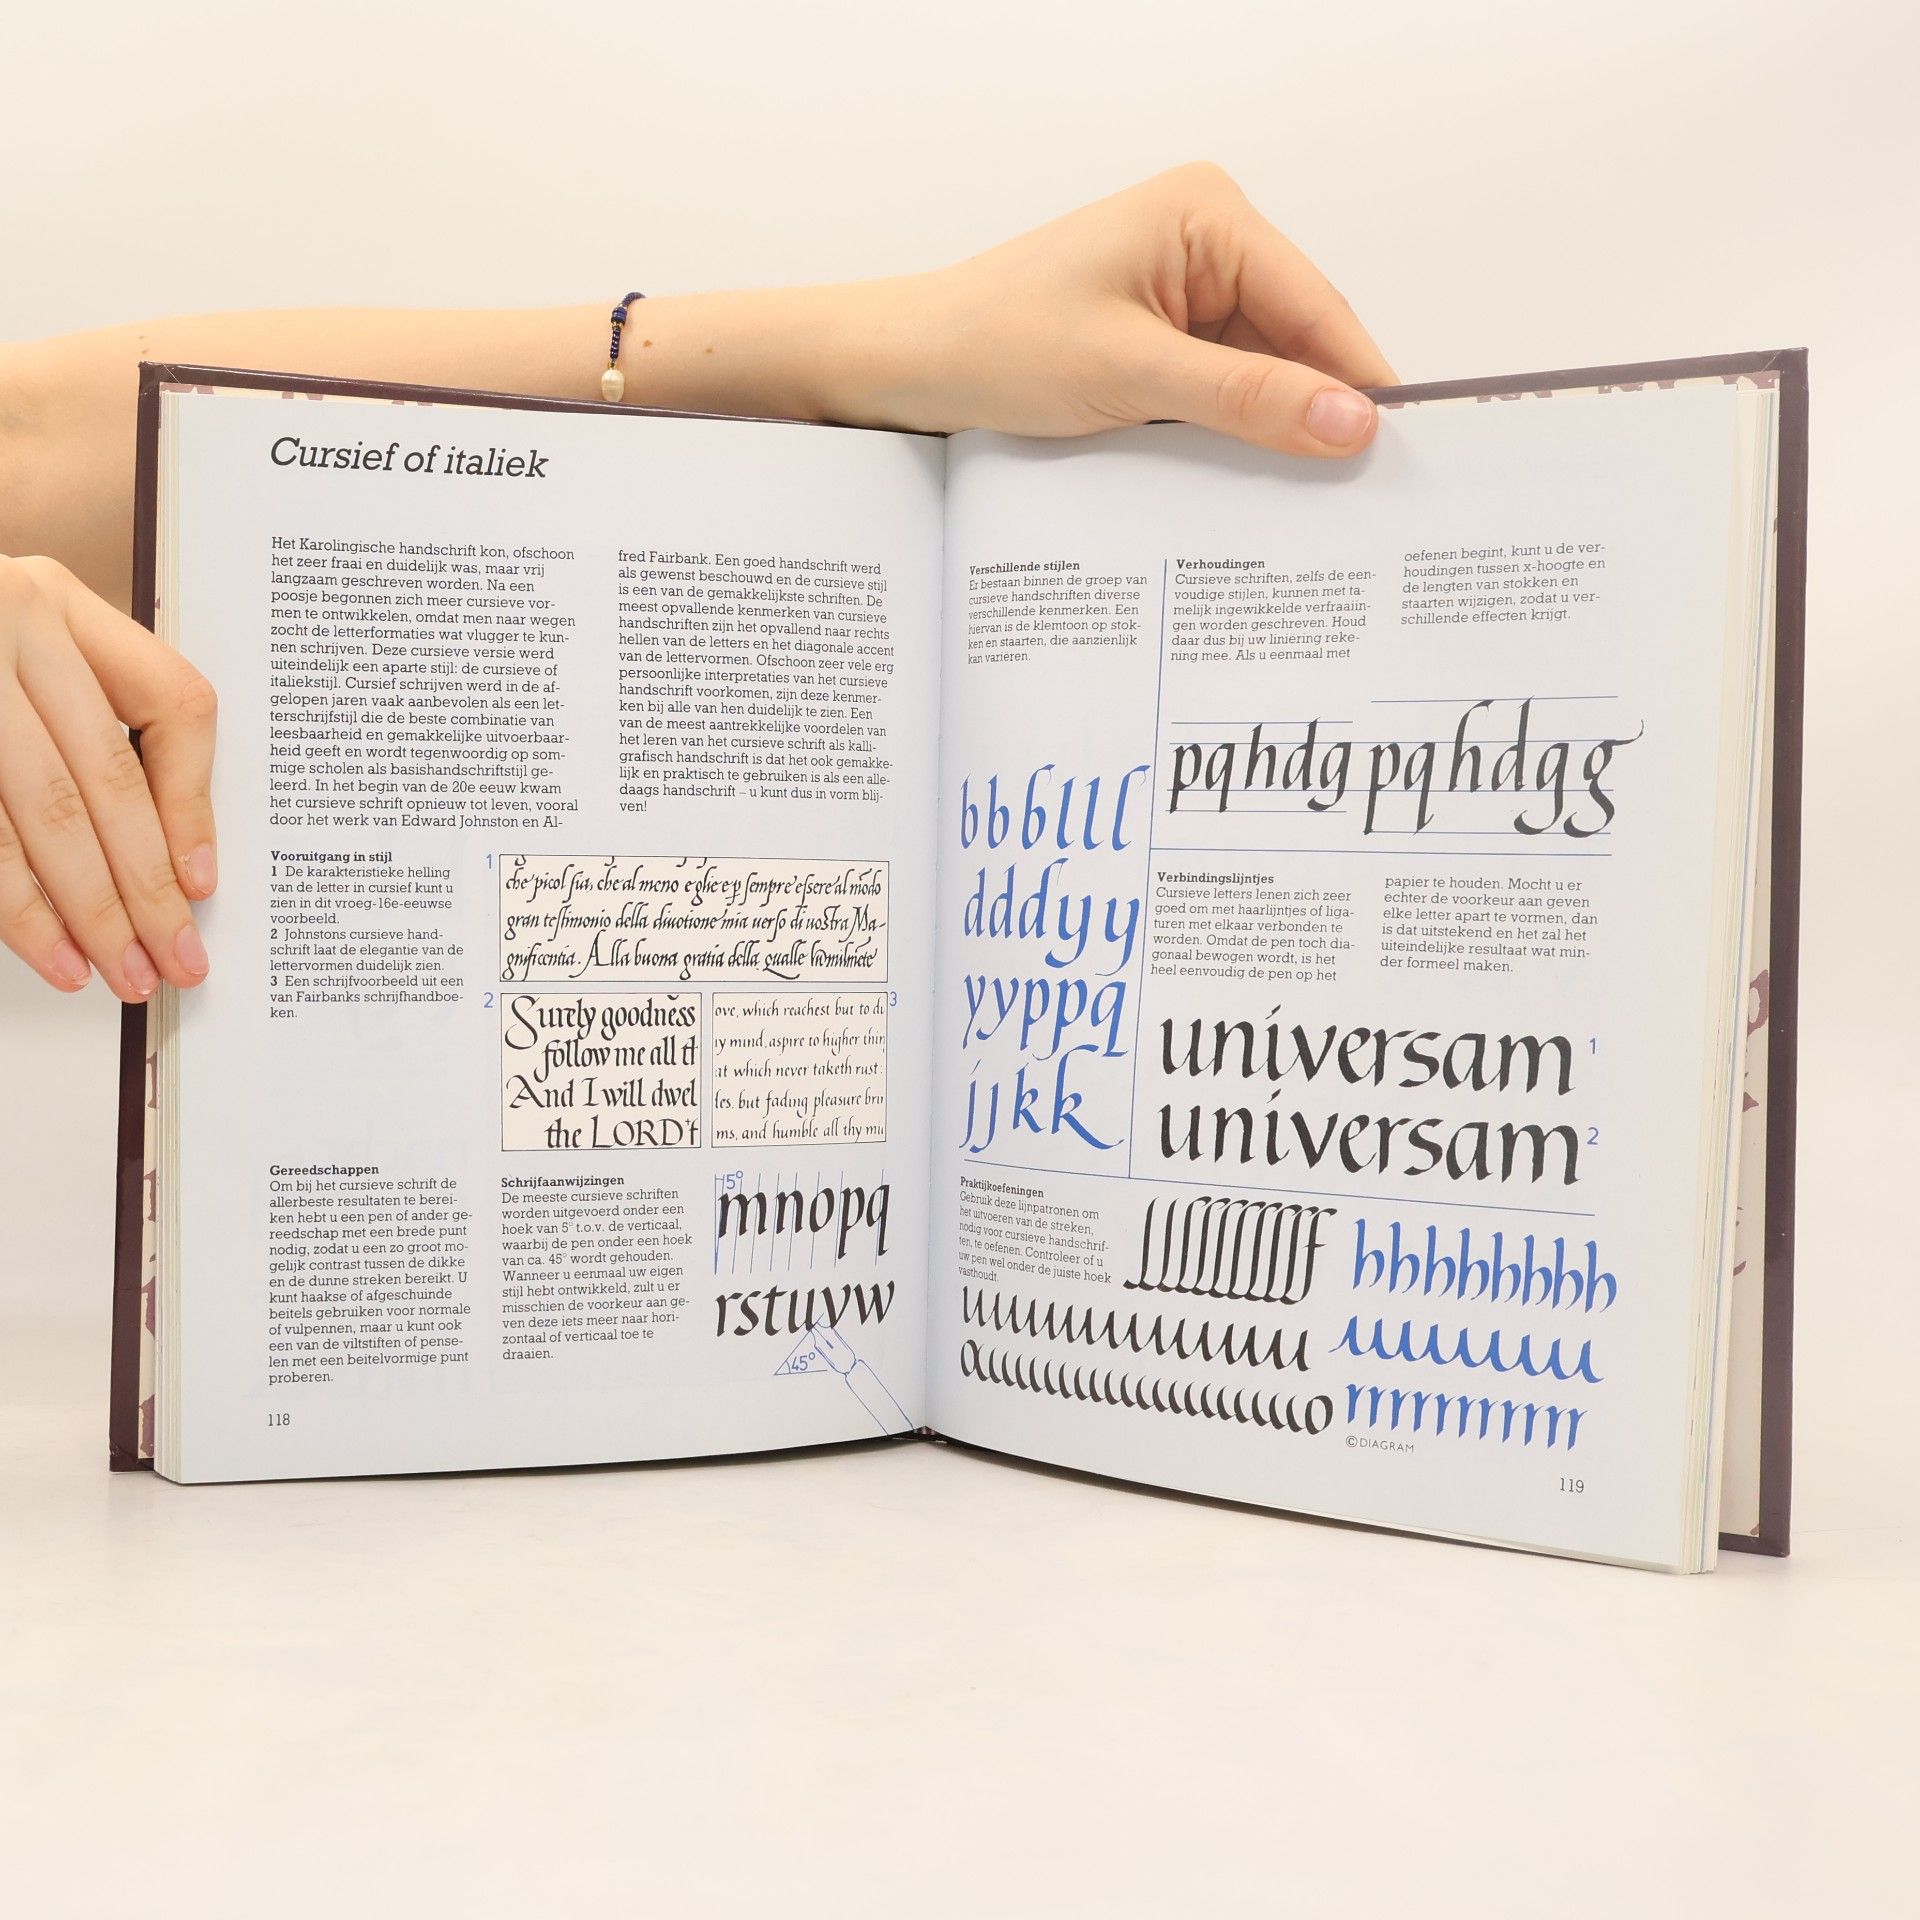 Cursief of italiek
Het Karolingische handschrift kon, ofschoon
het zeer fraai en duidelijk was, maar vrij
langzaam geschreven worden. Na een
poosje begonnen zich meer cursieve vor-
men te ontwikkelen, omdat men naar wegen
zocht de letterformaties wat vlugger te kun-
nen schrijven. Deze cursieve versie werd
uiteindelijk een aparte stijl: de cursieve of
italiekstijl. Cursief schrijven werd in de af-
gelopen jaren vaak aanbevolen als een let-
terschrijfstijl die de beste combinatie van
leesbaarheid en gemakkelijke uitvoerbaar-
heid geeft en wordt tegenwoordig op som-
mige scholen als basishandschriftstijl ge-
leerd. In het begin van de 20e eeuw kwam
het cursieve schrift opnieuw tot leven, vooral
door het werk van Edward Johnston en Al-
fred Fairbank. Een goed handschrift werd
als gewenst beschouwd en de cursieve stijl
is een van de gemakkelijkste schriften. De
meest opvallende kenmerken van cursieve
handschriften zijn het opvallend naar rechts
hellen van de letters en het diagonale accent
van de lettervormen. Ofschoon zeer vele erg
persoonlijke interpretaties van het cursieve
handschrift voorkomen, zijn deze kenmer-
ken bij alle van hen duidelijk te zien. Een
van de meest aantrekkelijke voordelen van
het leren van het cursieve schrift als kalli-
grafisch handschrift is dat het ook gemakke-
lijk en praktisch te gebruiken is als een alle-
daags handschrift – u kunt dus in vorm blij-
ven!
Vooruitgang in stijl
1 De karakteristieke helling
van de letter in cursief kunt u
zien in dit vroeg-16e-eeuwse
voorbeeld.
2 Johnstons cursieve hand-
schrift laat de elegantie van de
lettervormen duidelijk zien.
3 Een schrijfvoorbeeld uit een
van Fairbanks schrijfhandboe-
ken.
1
che picol sia, che al meno e glie e p sempre essere al modo
gran testimonio della diuotione mia uerso di uostra Ma-
gnificentia. Alla buona gratia della qualle
2
Surely goodness
follow me all th
And I will dwel
the LORD't
3
ove, which reachest but to du
y mind, aspire to higher thin
at which never taketh rust:
les, but fading pleasure brin
ms, and humble all thy mu
Gereedschappen
Om bij het cursieve schrift de
allerbeste resultaten te berei-
ken hebt u een pen of ander ge-
reedschap met een brede punt
nodig, zodat u een zo groot mo-
gelijk contrast tussen de dikke
en de dunne streken bereikt. U
kunt haakse of afgeschuinde
beitels gebruiken voor normale
of vulpennen, maar u kunt ook
een van de viltstiften of pense-
len met een beitelvormige punt
proberen.
Schrijfaanwijzingen
De meeste cursieve schriften
worden uitgevoerd onder een
hoek van 5° t.o.v. de verticaal,
waarbij de pen onder een hoek
van ca. 45° wordt gehouden.
Wanneer u eenmaal uw eigen
stijl hebt ontwikkeld, zult u er
misschien de voorkeur aan ge-
ven deze iets meer naar hori-
zontaal of verticaal toe te
draaien.
5°
mnopq
rstuvw
45°
118
Verschillende stijlen
Er bestaan binnen de groep van
cursieve handschriften diverse
verschillende kenmerken. Een
hiervan is de klemtoon op stok-
ken en staarten, die aanzienlijk
kan variëren.
bbblll
dddyy
yyppq
jjkk
Verhoudingen
Cursieve schriften, zelfs de een-
voudige stijlen, kunnen met ta-
melijk ingewikkelde verfraaiin-
gen worden geschreven. Houd
daar dus bij uw liniëring reke-
ning mee. Als u eenmaal met
oefenen begint, kunt u de ver-
houdingen tussen x-hoogte en
de lengten van stokken en
staarten wijzigen, zodat u ver-
schillende effecten krijgt.
pqhdg pqhdgg
Verbindingslijntjes
Cursieve letters lenen zich zeer
goed om met haarlijntjes of liga-
turen met elkaar verbonden te
worden. Omdat de pen toch dia-
gonaal bewogen wordt, is het
heel eenvoudig de pen op het
papier te houden. Mocht u er
echter de voorkeur aan geven
elke letter apart te vormen, dan
is dat uitstekend en het zal het
uiteindelijke resultaat wat min-
der formeel maken.
universam 1
universam 2
Praktijkoefeningen
Gebruik deze lijnpatronen om
het uitvoeren van de streken,
nodig voor cursieve handschrif-
ten, te oefenen. Controleer of u
uw pen wel onder de juiste hoek
vasthoudt.
hhhhhhhh
rrrrrrrrrr
©DIAGRAM
119